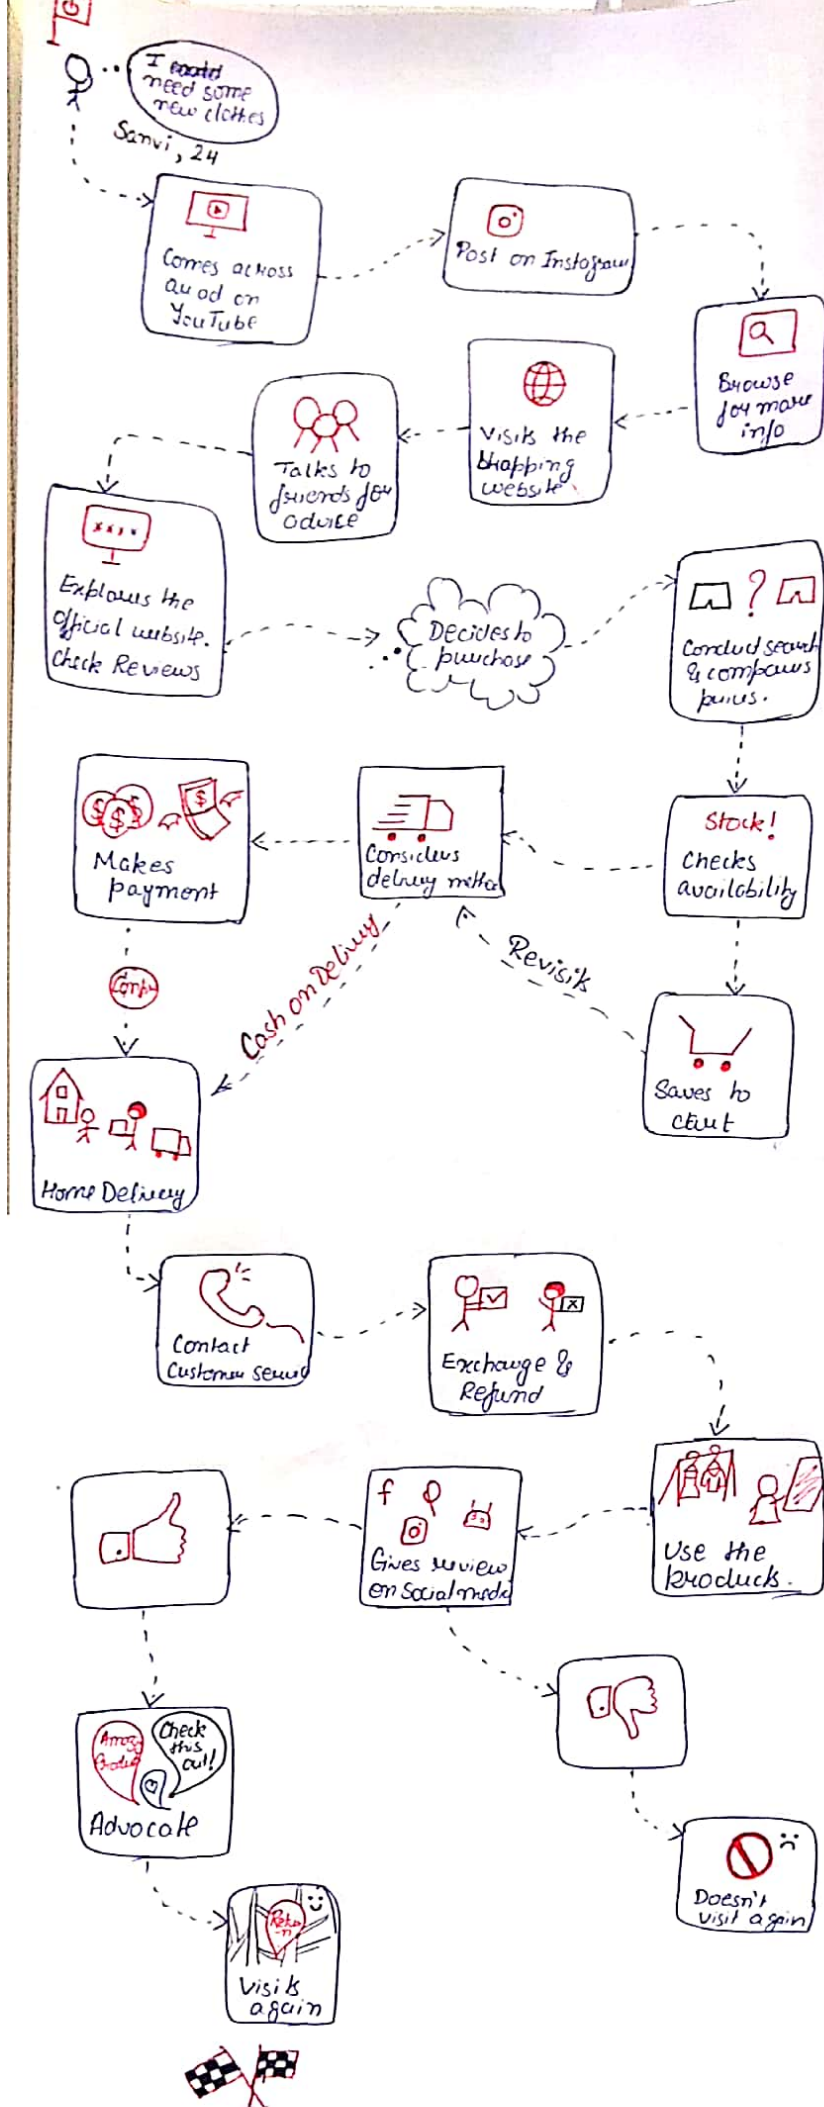 I
need some
new clothes
Sanvi, 24
Comes across
an ad on
YouTube
Post on Instagram
Browse
for more
info
Visits the
shopping
website.
Talks to
friends for
advice
Explores the
official website.
Check Reviews
Decides to
purchase
?
Conduct search
& compares
prices.
Stock!
Checks
availability
Considers
delivery method
$ $ $ $
Makes
payment
Cash on Delivery
Revisits
Saves to
cart
Home Delivery
Contact
Customer service
Exchange &
Refund
Use the
products.
f
Gives review
on Social media
Check
this
out!
Advocate
Doesn't
visit again
Visits
again